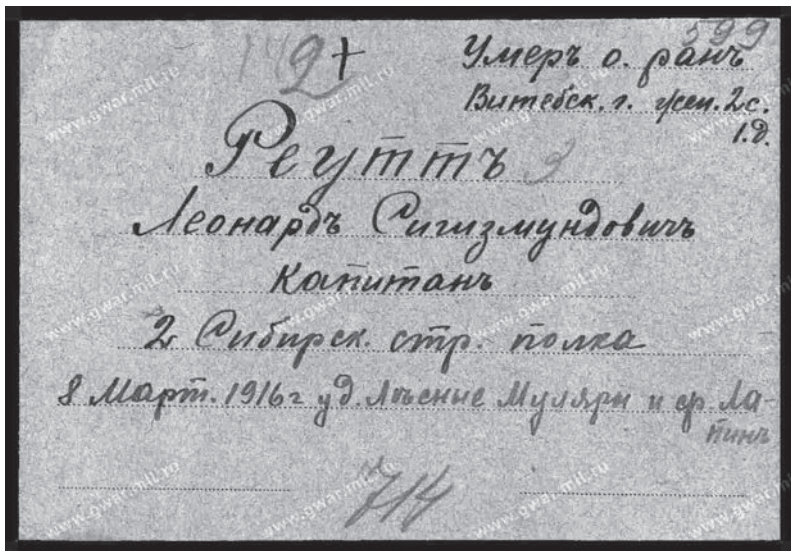 599
142 +
Умеръ о. ранъ
Витебск. г. жен. 2 с.
1 д.
Реуттъ 3
Леонардъ Сигизмундовичъ
Капитанъ
2 Сибирск. стр. полка
8 Март. 1916 г у д. Лѣсные Муляры и ф. Ла-
пинъ
714
www.gwar.mil.ru